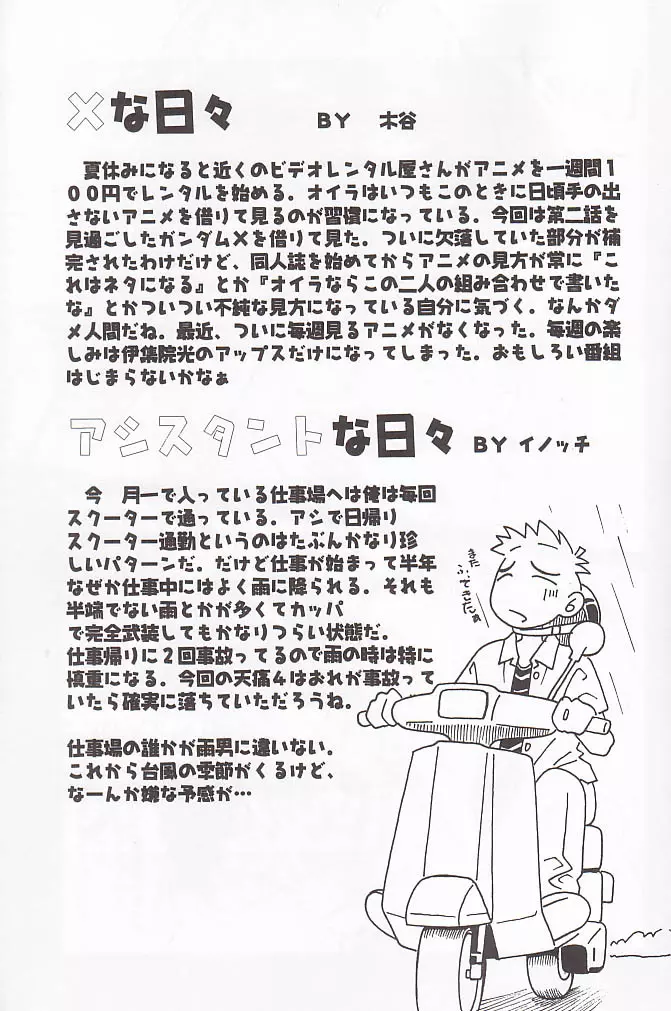 ×な日々 BY 木谷
夏休みになると近くのビデオレンタル屋さんがアニメを一週間1
00円でレンタルを始める。オイラはいつもこのときに日頃手の出
さないアニメを借りて見るのが習慣になっている。今回は第二話を
見過ごしたガンダム×を借りて見た。ついに欠落していた部分が補
完されたわけだけど、同人誌を始めてからアニメの見方が常に『こ
れはネタになる』とか『オイラならこの二人の組み合わせで書いた
な』とかついつい不純な見方になっている自分に気づく。なんかダ
メ人間だね。最近、ついに毎週見るアニメがなくなった。毎週の楽
しみは伊集院光のアップスだけになってしまった。おもしろい番組
はじまらないかなぁ
アシスタントな日々 BY イノッチ
今 月一で入っている仕事場へは俺は毎回
スクーターで通っている。アシで日帰り
スクーター通勤というのはたぶんかなり珍
しいパターンだ。だけど仕事が始まって半年
なぜか仕事中にはよく雨に降られる。それも
半端でない雨とかが多くてカッパ
で完全武装してもかなりつらい状態だ。
仕事帰りに2回事故ってるので雨の時は特に
慎重になる。今回の天痛4はおれが事故って
いたら確実に落ちていただろうね。
仕事場の誰かが雨男に違いない。
これから台風の季節がくるけど、
なーんか嫌な予感が…
また
ふってきたなぁ